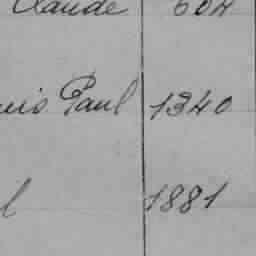 Claude 604
uis Paul 1340
l 1881